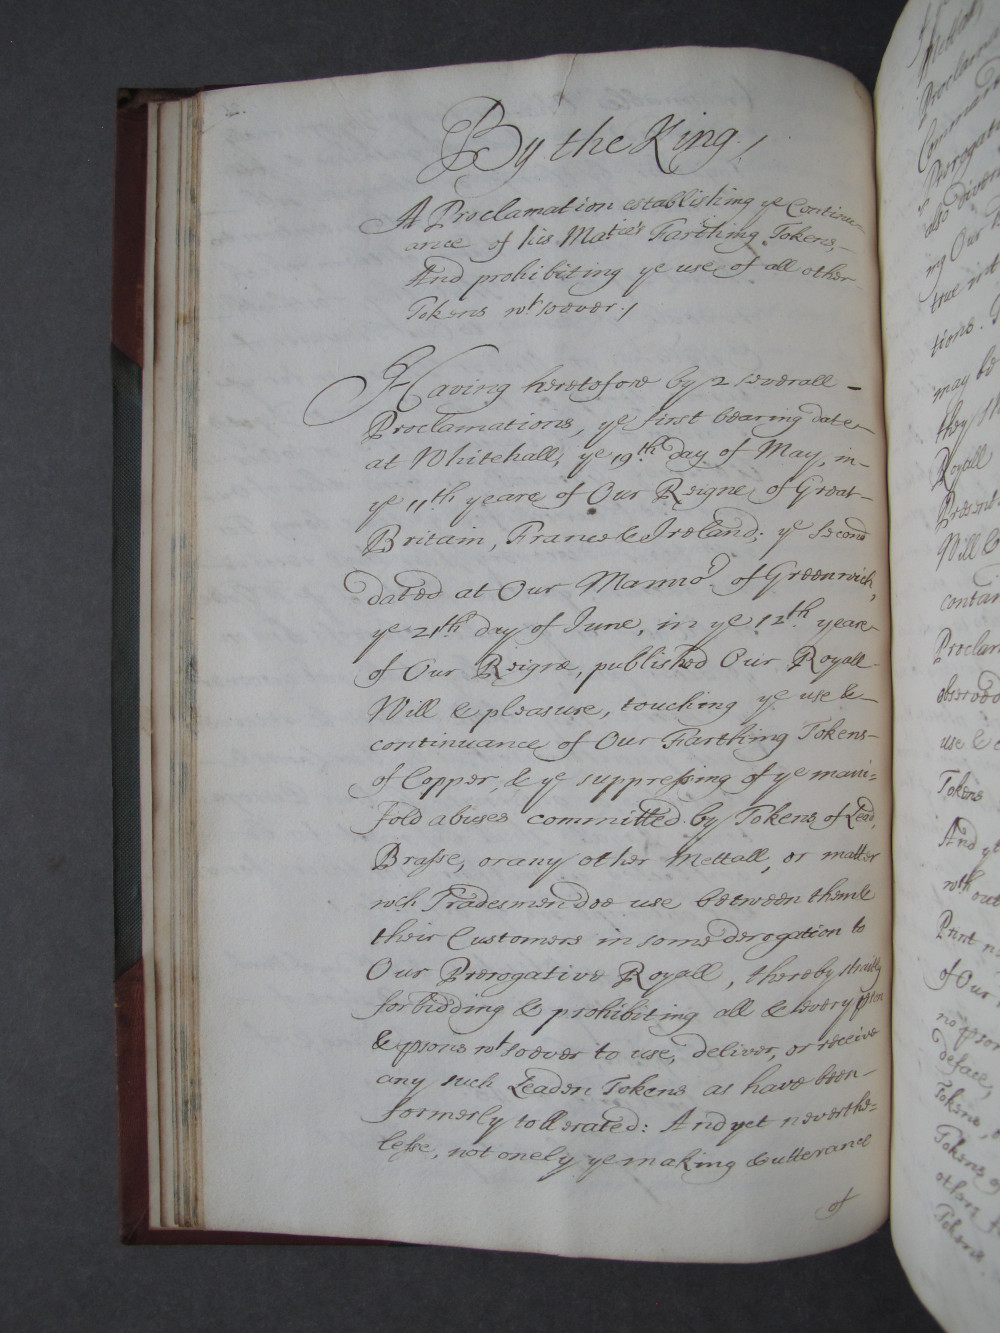 By the King./
A Proclamation establishing ye Continu-
ance of his Maties Farthing Tokens,
And prohibiting ye use of all other
Tokens wtsoever./
Having heretofore by 2 severall
Proclamations, ye first bearing date
at Whitehall, ye 19th day of May, in
ye 11th yeare of Our Reigne of Great
Britain, France & Ireland; ye Second
dated at Our Mannor of Greenwich,
ye 21th day of June, in ye 12th yeare
of Our Reigne, published Our Royall
Will & pleasure, touching ye use &
continuance of Our Farthing Tokens
of Copper, & ye suppressing of ye mani=
fold abuses committed by Tokens of Lead,
Brasse, or any other Mettall, or matter
wch Tradesmen doe use between them &
their Customers in some derogation to
Our Prerogative Royall, thereby straitly
forbidding & prohibiting all & every pson
& psons wtsoever to use, deliver, or receive
any such Leaden Tokens as have been
formerly tollerated: And yet neverthe=
lesse, not onely ye making & utterance
of
Proclam
Comman
Prerogat
also divers
ng Our
true int
tions.
may be
they
Royall
Present
Will &
contain
Proclam
observed
use &
Tokens
And yt
wth out
Print
of Our
no pson
deface,
Tokens
Tokens
other
Tokens